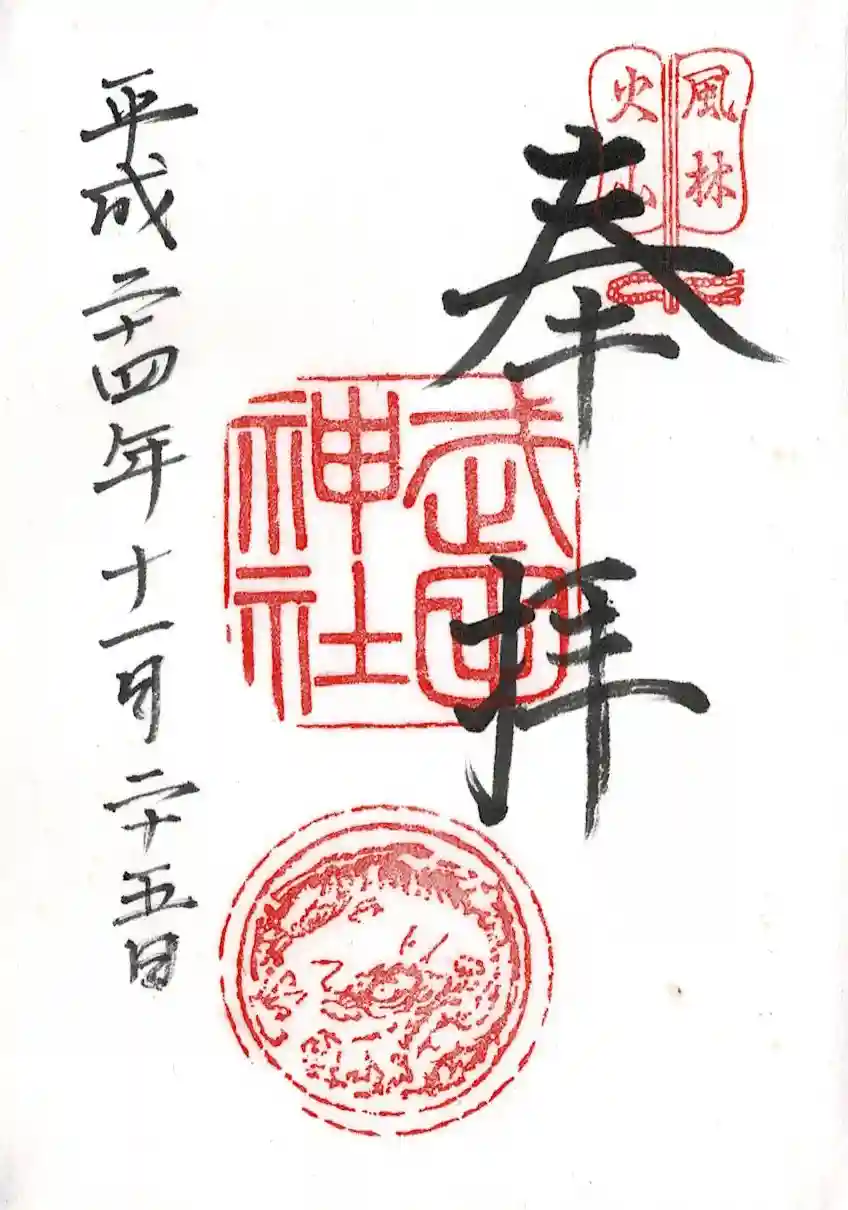 風林
火山
奉拝
武田
神社
平成二十四年十一月二十五日